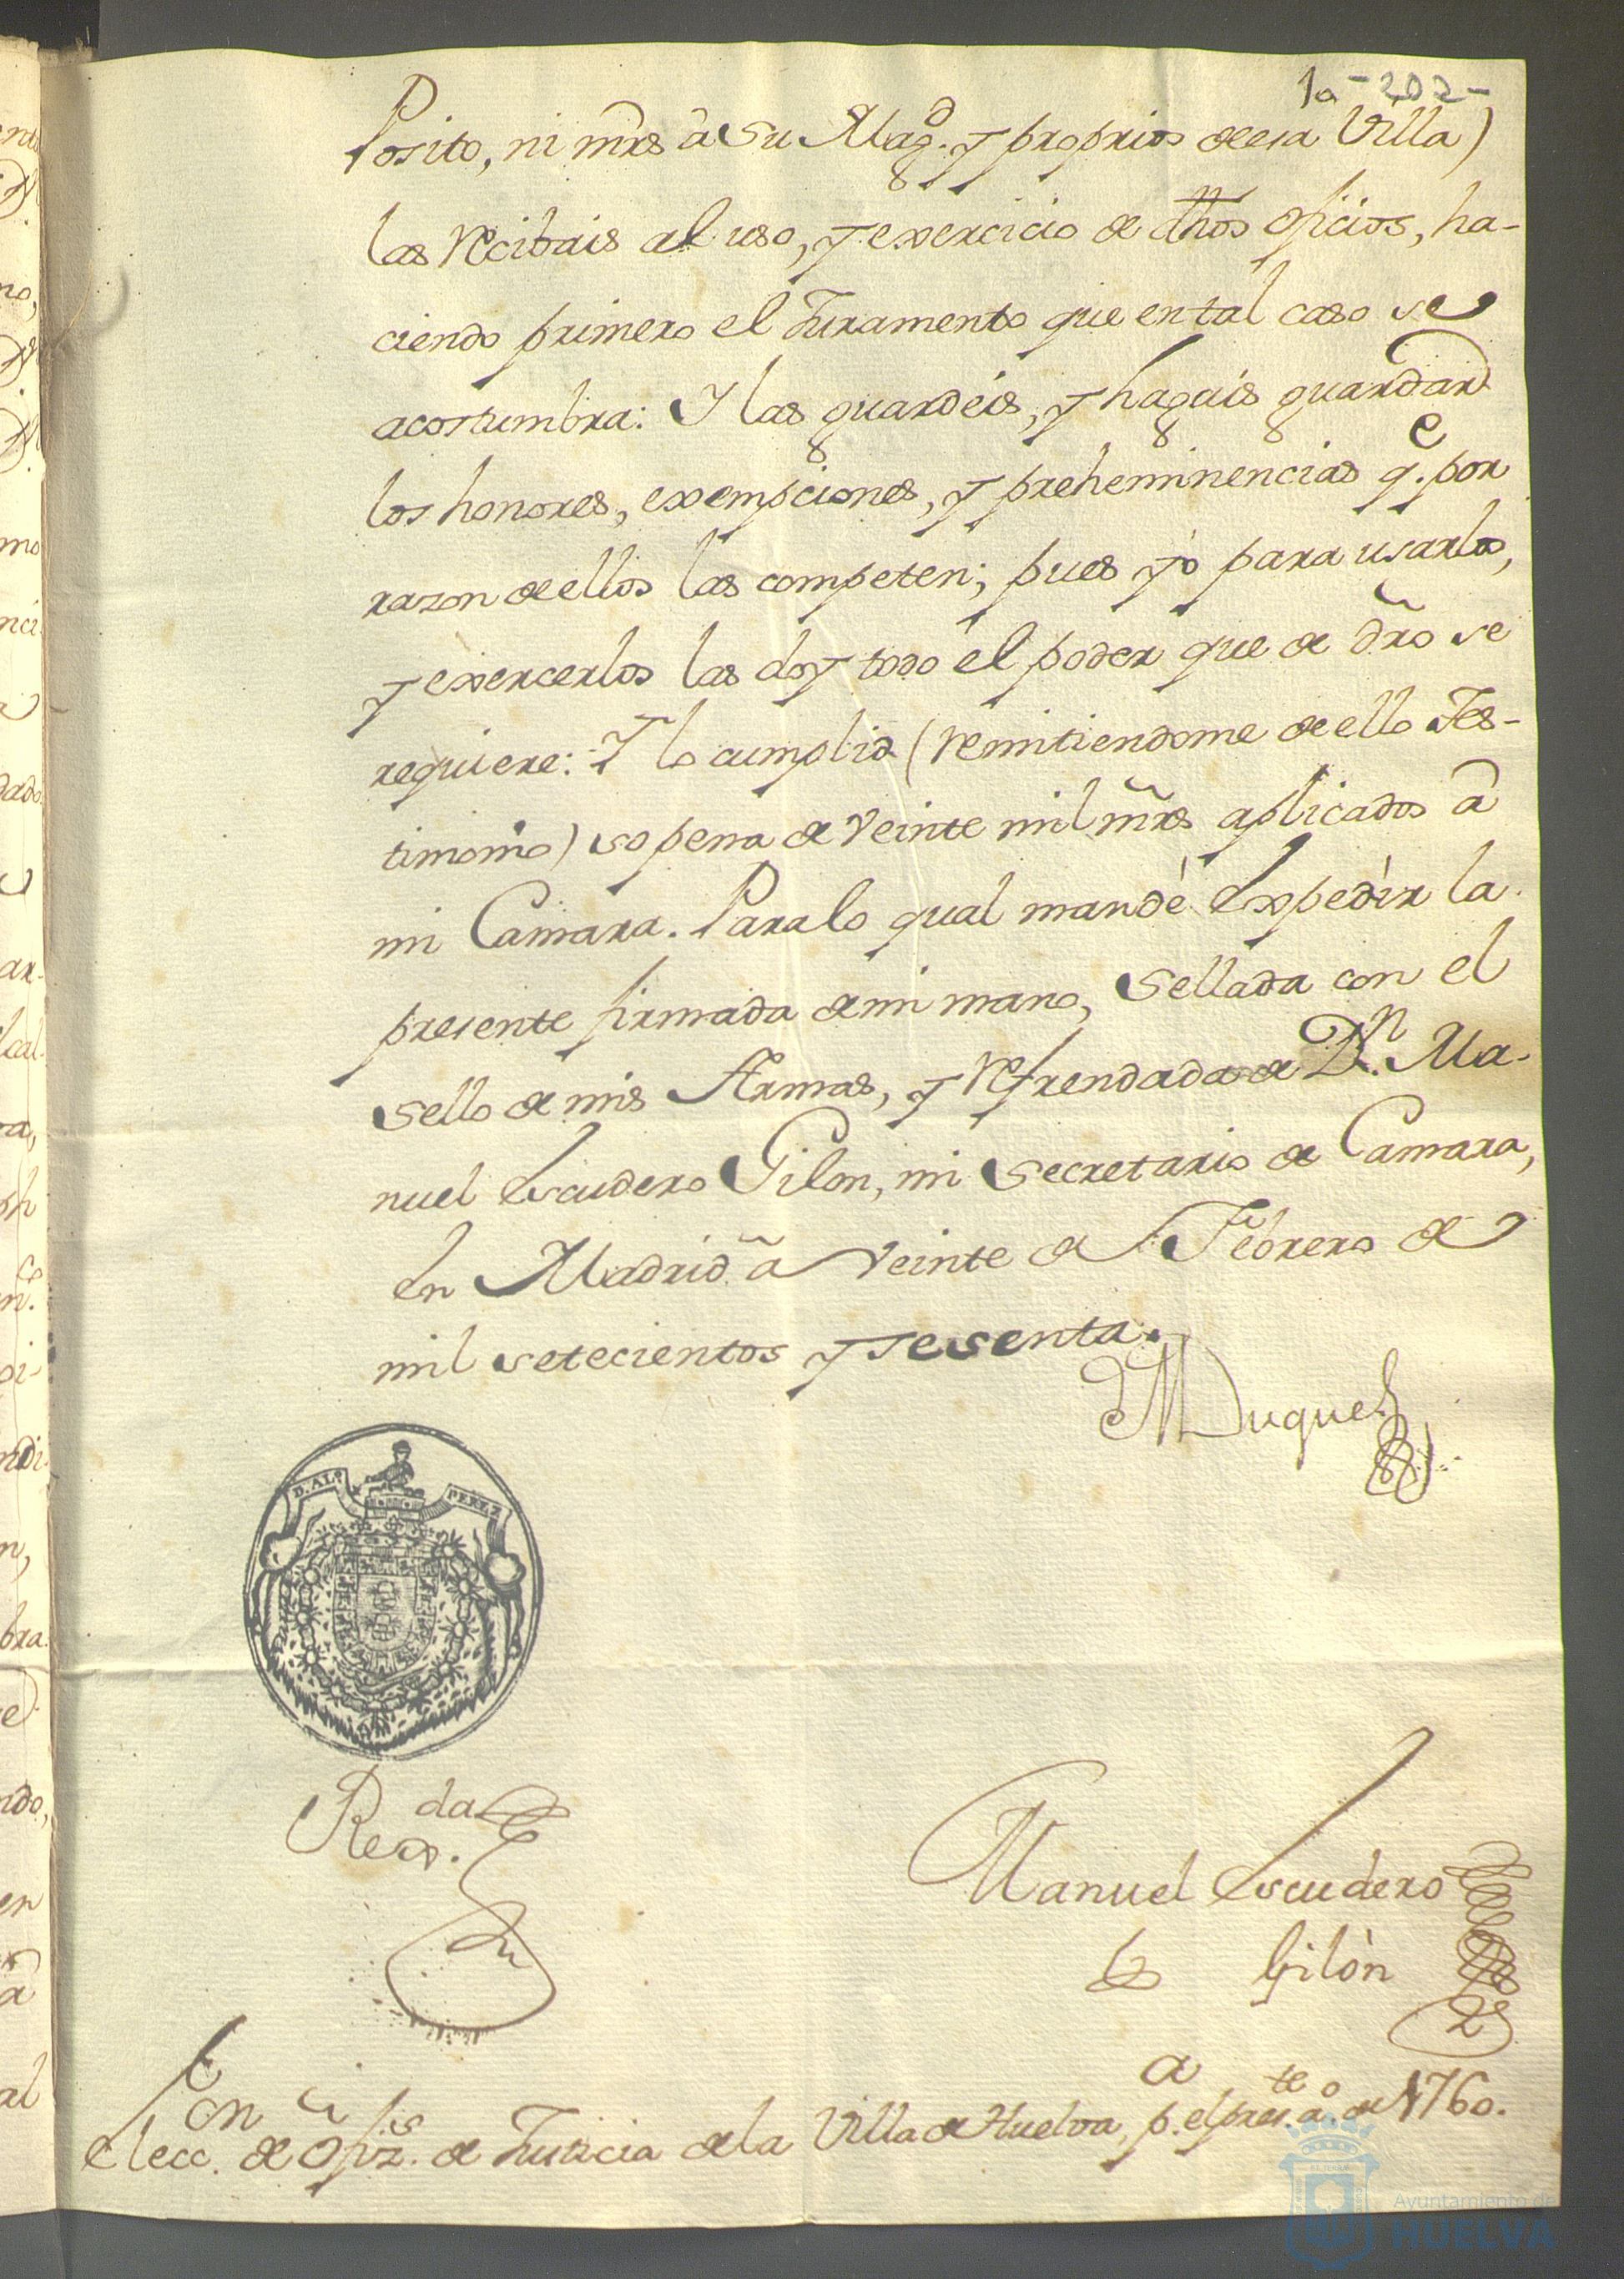 1a -202-
Posito, ni mrs â Su Magd. y proprios de esa Villa)
las recibais al uso, y exercicio de dhos oficios, ha-
ciendo primero el Juramento que en tal caso se
acostumbra: Y las guardeis, y hagais guardar
los honores, exempciones, y preheminencias qe. por
razon de ellos las competen; pues yò para usarlos,
y exercerlos las doy todo el poder que de dro se
requiere: Y lo cumplid (remitiendome de ello Tes-
timonio) so pena de veinte mil mrs aplicados â
mi Camara. Para lo qual mandè Expedir la
presente firmada de mi mano, sellada con el
sello de mis Armas, y refrendada de Dn. Ma-
nuel Escudero Gilon, mi Secretario de Camara,
En Madrid â veinte de Febrero de
mil setecientos y sesenta.
El Duque
D. ALO PEREZ
Rexda.
Manuel Escudero
Gilòn
Eleccon. de Ofizs. de Justicia de la Villa de Huelva, pa. el preste. ao. de 1760.
Ayuntamiento de
HUELVA